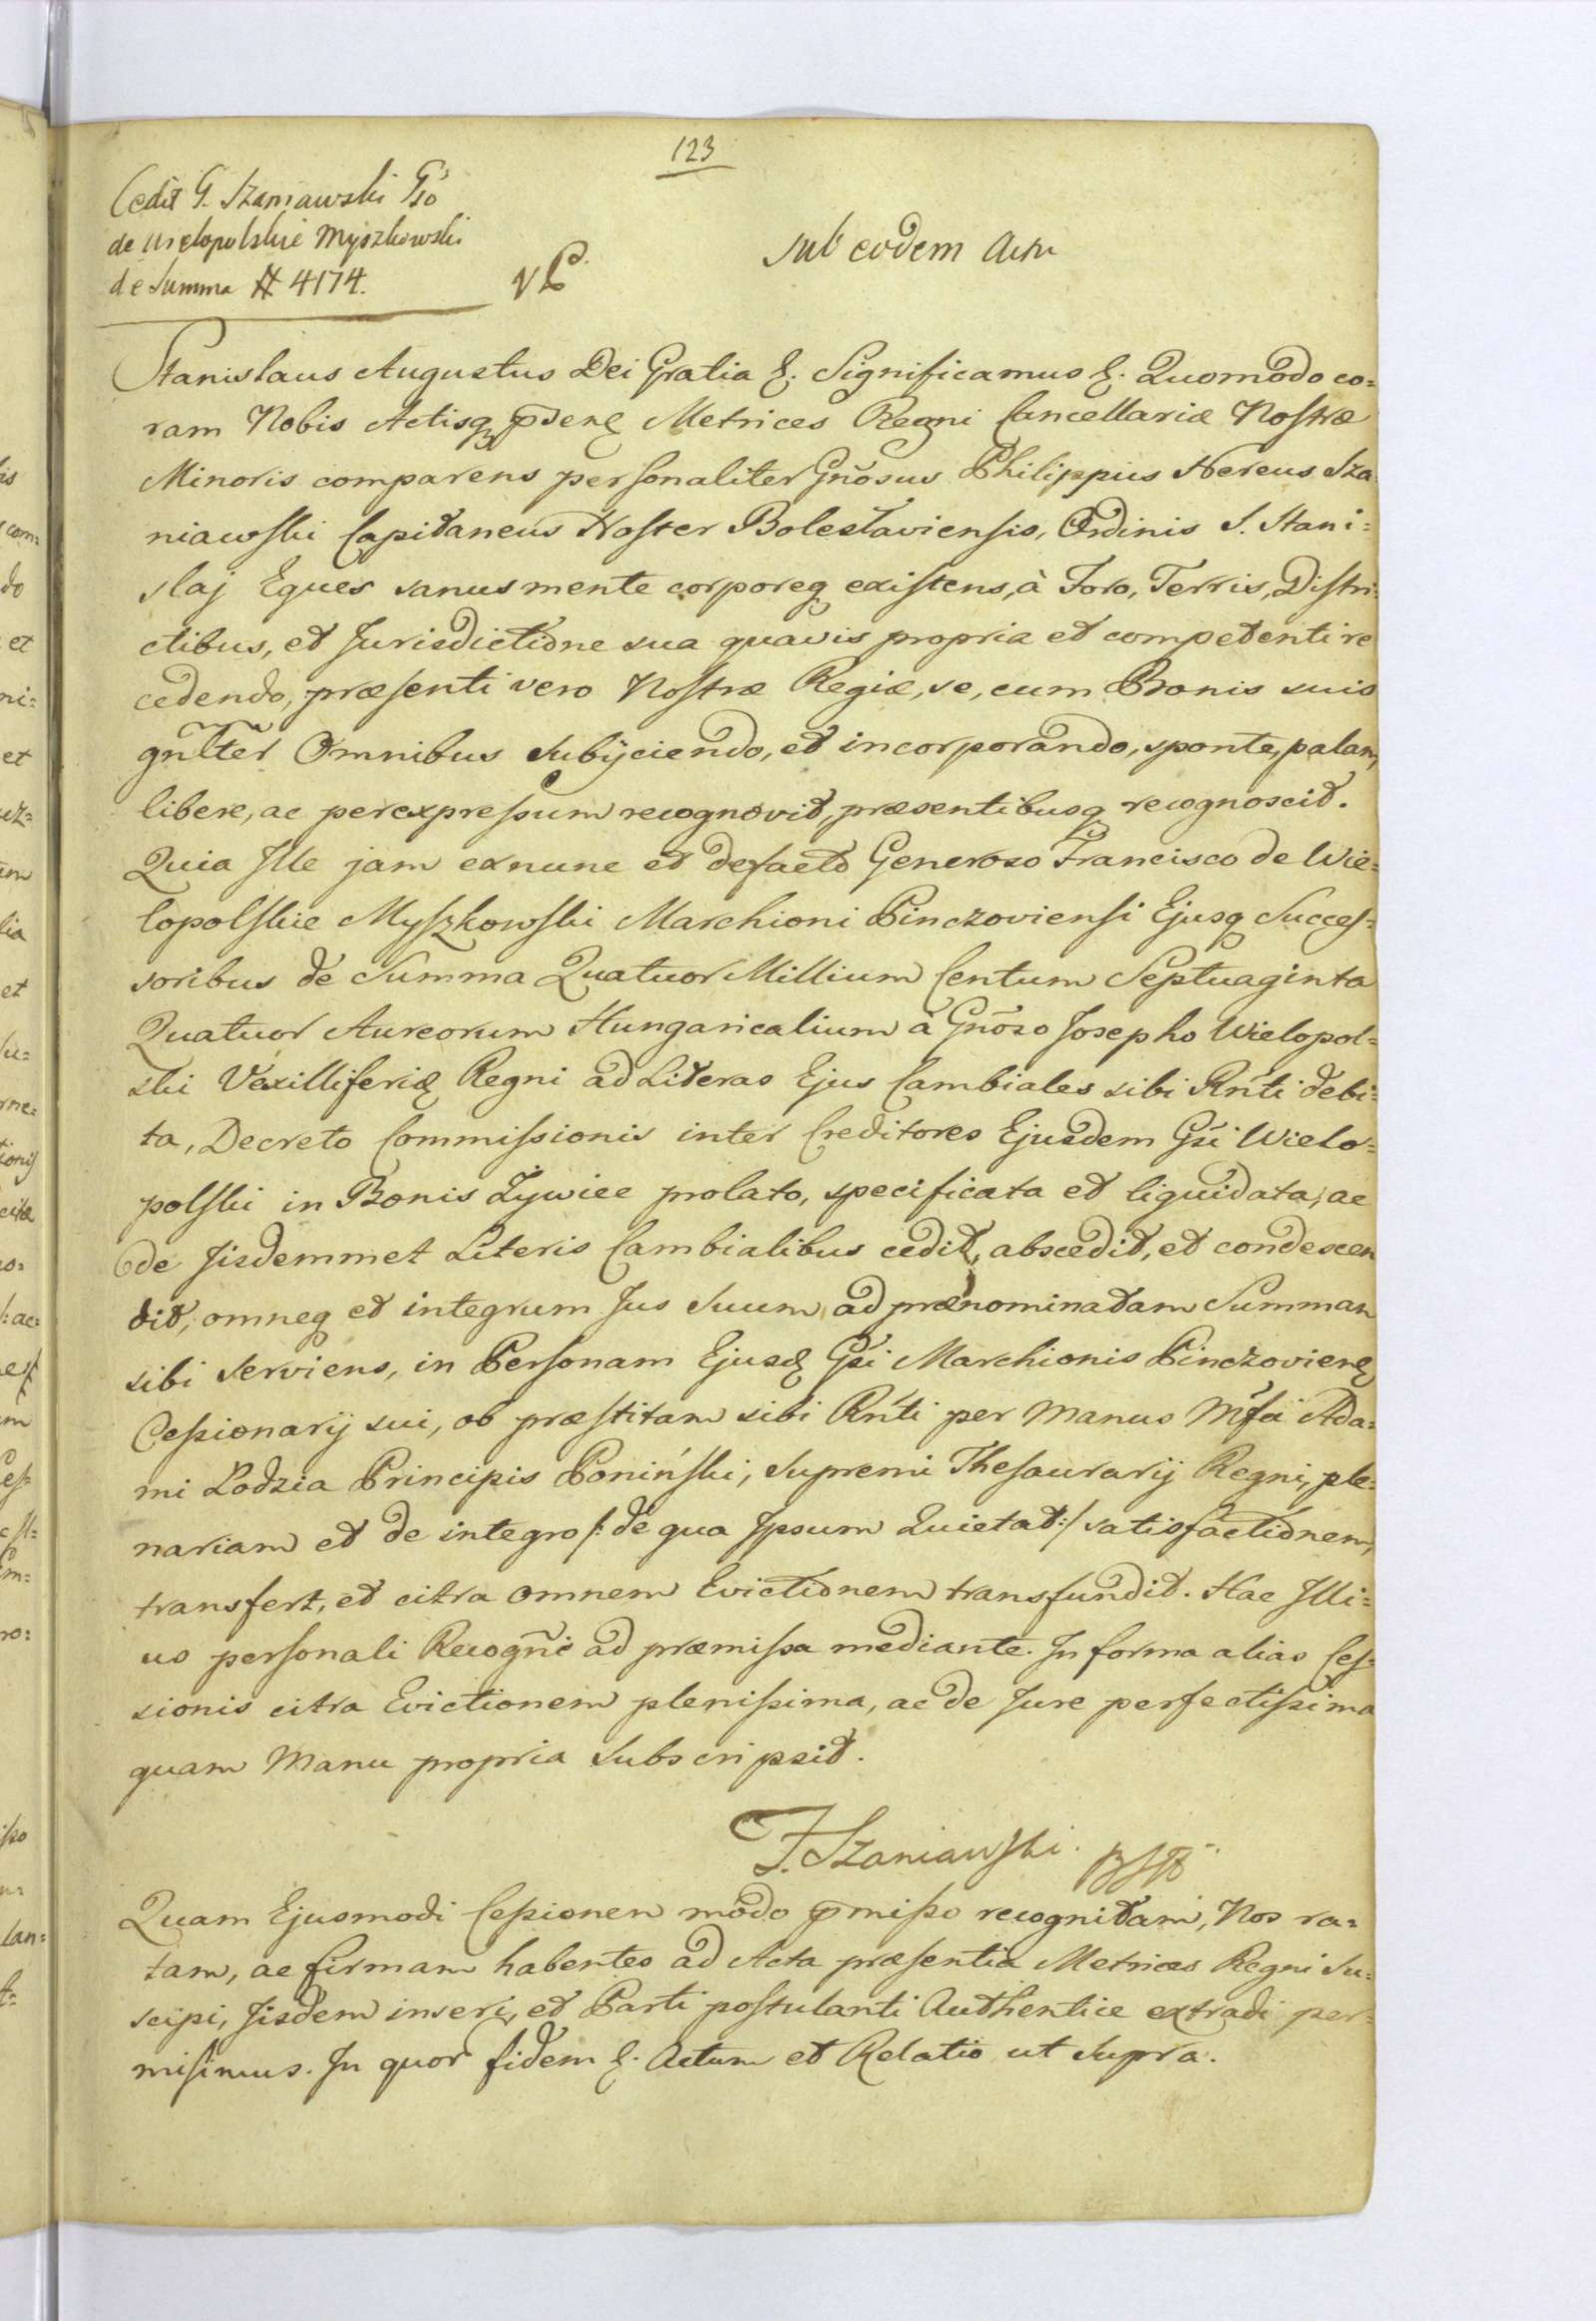 123
Cedit G. Szaniawski Gso
de Wielopolskie Myszkowski
de Summa # 4174.
sub eodem Actu
Stanislaus Augustus Dei Gratia &. Significamus &. Quomodo co=
ram Nobis Actisq pñeñs Metrices Regni Cancellariæ Nostræ
Minoris comparens personaliter Gnõsus Philippus Nereus Sza
niawski Capitaneus Noster Boleslaviensis, Ordinis S. Stani=
slaj Eques sanus mente corporeq existens, à Foro, Terris, Distri=
ctibus, et Jurisdictione sua quavis propria et competenti re
cedendo, præsenti vero Nostræ Regiæ, se, cum Bonis suis
gñlter Omnibus Subijciendo, et incorporando, sponte, palam,
libere, ac per expressum recognovit, præsentibusq recognoscit.
Quia Ille jam exnunc et defacto Generoso Francisco de Wie=
lopolskie Myszkowski Marchioni Pinczoviensi Ejusq Succes=
soribus de Summa Quatuor Millium Centum Septuaginta
Quatuor Aureorum Hungaricalium à Gnõso Josepho Wielopol=
ski Vexilliferiæ Regni ad Literas Ejus Cambiales sibi Rñti debi=
ta, Decreto Commissionis inter Creditores Ejusdem Gsi Wielo=
polski in Bonis Żywiec prolato, specificata et liquidata, ac
de Jisdemmet Literis Cambialibus cedit, abscedit, et condescen
dit, omneq et integrum Jus Suum ad prænominatam Summam
sibi Serviens, in Personam Ejusd Gsi Marchionis Pinczoviens
Cessionarij sui, ob præstitam sibi Rñti per Manus Mfci Ada=
mi Lodzia Principis Poniński, Supremi Thesaurarij Regni, ple=
nariam et de integro /: de qua Ipsum Quietat :/ satisfactionem,
transfert, et citra omnem Evictionem transfundit. Hac Illi=
us personali Recognñe ad præmissa mediante. In forma alias Ces=
sionis citra Evictionem plenissima, ac de Jure perfectissima
quam Manu propria Subscripsit.
F. Szaniawski.
Quam Ejusmodi Cessionem modo pmisso recognitam, Nos ra=
tam, ac firmam habentes ad Acta præsentia Metrices Regni Su=
scipi, Jisdem inseri, et Parti postulanti Authentice extradi per=
misimus. In quor fidem &. Actum et Relatio ut Supra.